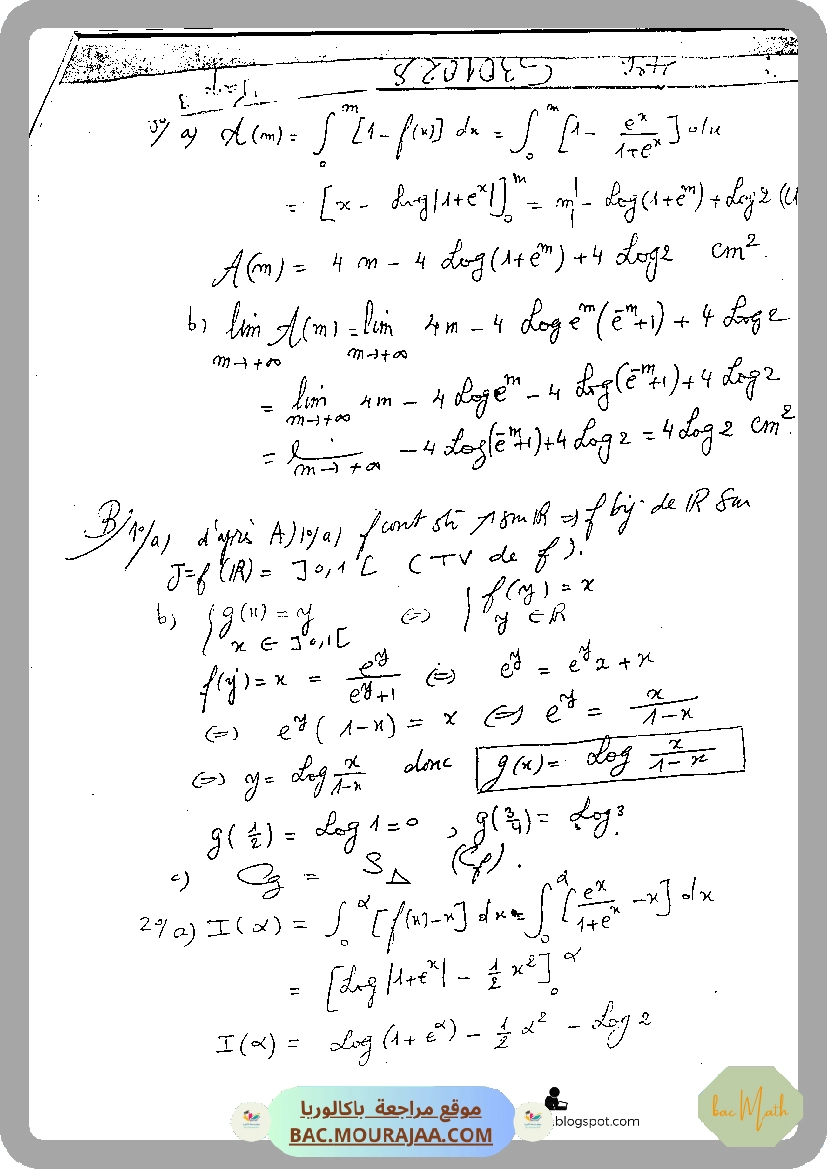 3°/ a) A(m) = ∫₀^m [1 - f(x)] dx = ∫₀^m [1 - e^x/(1+e^x)] dx
= [x - Log|1+e^x|]₀^m = m - Log(1+e^m) + Log 2
A(m) = 4m - 4 Log(1+e^m) + 4 Log 2 cm²
b) lim A(m) = lim 4m - 4 Log e^m (e^-m + 1) + 4 Log 2
m→+∞ m→+∞
= lim 4m - 4 Log e^m - 4 Log(e^-m + 1) + 4 Log 2
m→+∞
= - 4 Log(e^-m + 1) + 4 Log 2 = 4 Log 2 cm².
m→+∞
B/ 1°/a) d'après A) 1°/a) f cont str ↗ sur IR ⇒ f bij de IR sur
J = f(IR) = ]0,1[ (TV de f).
b) { g(x) = y ⇔ { f(y) = x
x ∈ ]0,1[ y ∈ IR
f(y) = x = e^y/(e^y+1) ⇔ e^y = e^y x + x
⇔ e^y (1-x) = x ⇔ e^y = x/(1-x)
⇔ y = Log x/(1-x) donc g(x) = Log x/(1-x)
g(1/2) = Log 1 = 0 , g(3/4) = Log 3.
c) Cg = S_Δ (Cf).
2°/a) I(α) = ∫₀^α [f(x)-x] dx = ∫₀^α [e^x/(1+e^x) - x] dx
= [Log|1+e^x| - 1/2 x²]₀^α
I(α) = Log(1+e^α) - 1/2 α² - Log 2
موقع مراجعة باكالوريا
BAC.MOURAJAA.COM
.blogspot.com
bac Math